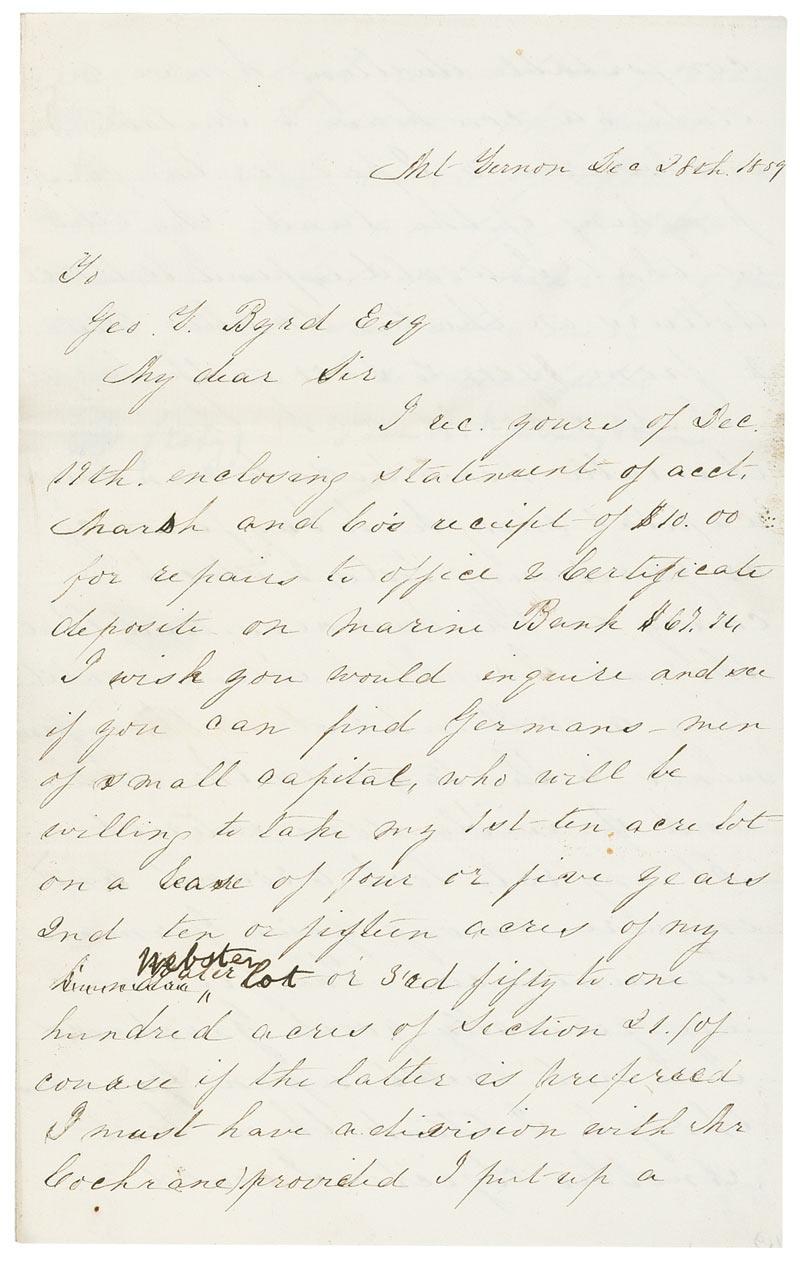 Mt Vernon Dec 28th. 1859
To
Geo. T. Byrd Esq
My dear Sir
I rec. yours of Dec.
19th. enclosing statement of acct.
Marsh and Co's receipt of $10.00
for repairs to office & Certificate
deposite on Marine Bank $67.74
I wish you would inquire and see
if you can find Germans - men
of small capital, who will be
willing to take my 1st ten acre lot
on a lease of four or five years
2nd ten or fifteen acres of my
Webster lot or 3rd fifty to one
hundred acres of Section 21. (of
course if the latter is preferred
I must have a division with Mr
Cochrane) provided I put up a